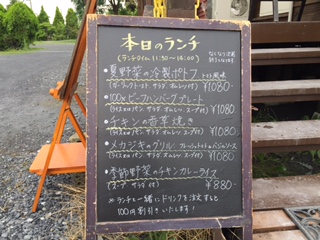 本日のランチ
(ランチタイム 11:30～14:00)
なくなり次第
・夏野菜の冷製ポトフ トマト風味
¥1080
・100%ビーフハンバーグプレート
(ライスorパン サラダ オムレツ スープ付) ¥1080
・チキンの香草焼き
(ライスorパン サラダ オムレツ スープ付) ¥1080
・メカジキのグリル
(ライスorパン サラダ オムレツ スープ付) ¥1080
・季節野菜のチキンカレーライス
(スープ サラダ付) ¥880-
※ランチと一緒にドリンクを注文しますと
100円割引きいたします!